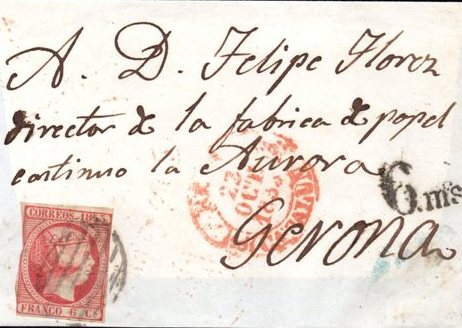 A. D. Felipe Florez
director de la fabrica de papel
continuo la Aurora
6.ms
Gerona
CORREOS. 1853
FRANCO 6 CS